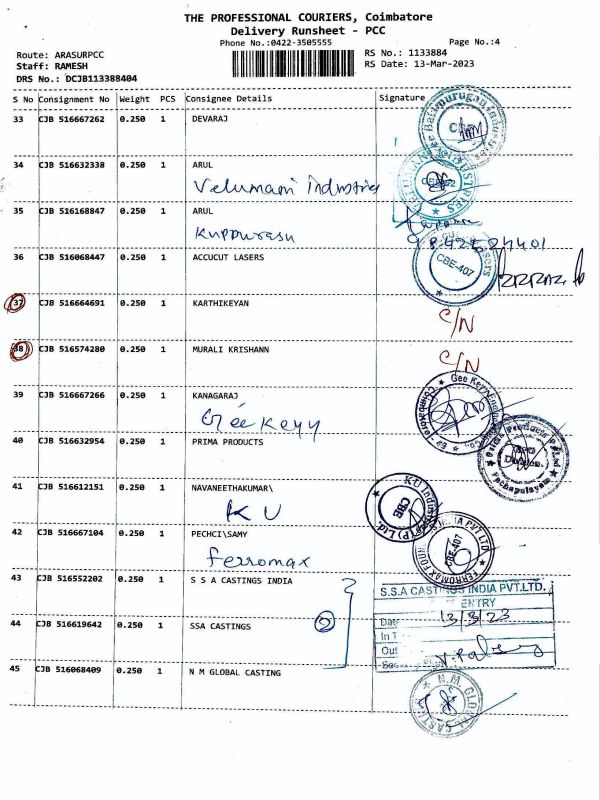 THE PROFESSIONAL COURIERS, Coimbatore
Delivery Runsheet - PCC
Phone No.:0422-3505555
Page No.:4
Route: ARASURPCC
RS No.: 1133884
Staff: RAMESH
RS Date: 13-Mar-2023
DRS No.: DCJB113388404
S No Consignment No Weight PCS Consignee Details Signature
33 CJB 516667262 0.250 1 DEVARAJ
34 CJB 516632338 0.250 1 ARUL
Velumani Industries
35 CJB 516168847 0.250 1 ARUL
Kuppurasu
36 CJB 516068447 0.250 1 ACCUCUT LASERS
CBE-407
37 CJB 516664691 0.250 1 KARTHIKEYAN
C/N
38 CJB 516574280 0.250 1 MURALI KRISHANN
C/N
39 CJB 516667266 0.250 1 KANAGARAJ
Geekeyy
40 CJB 516632954 0.250 1 PRIMA PRODUCTS
41 CJB 516612151 0.250 1 NAVANEETHAKUMAR\
KU
CBE
42 CJB 516667104 0.250 1 PECHCI\SAMY
Ferromax
CBE-407
43 CJB 516552202 0.250 1 S S A CASTINGS INDIA
S.S.A CASTINGS INDIA PVT.LTD.,
ENTRY
44 CJB 516619642 0.250 1 SSA CASTINGS
2
13/3/23
45 CJB 516068409 0.250 1 N M GLOBAL CASTING